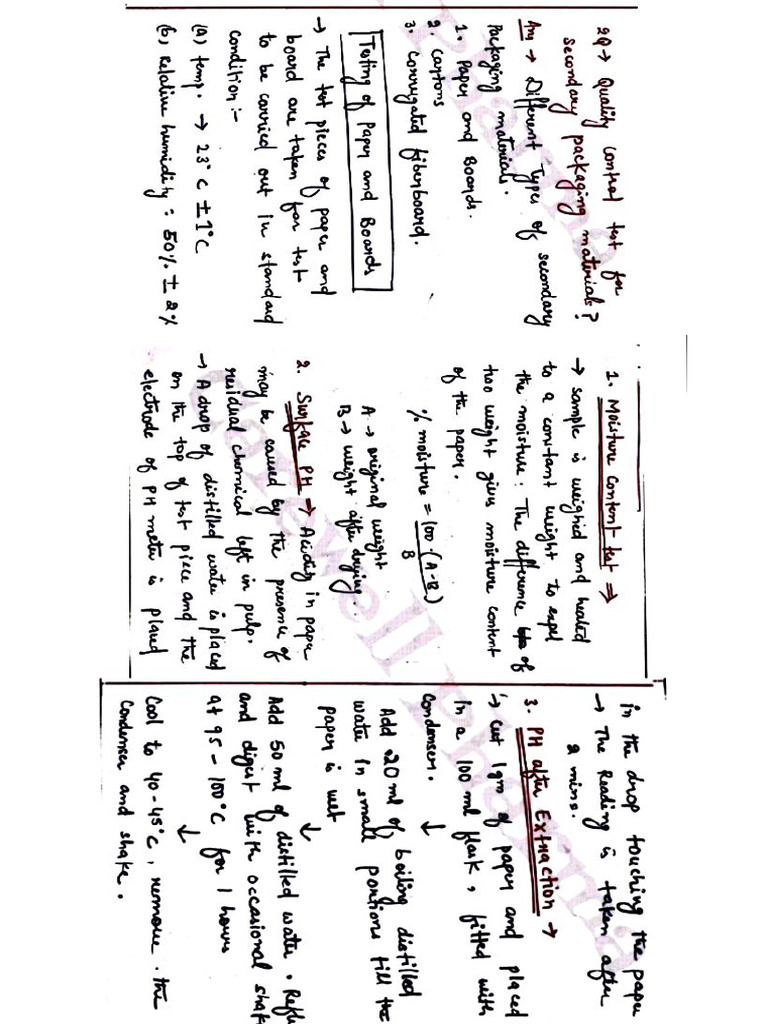 2Q → Quality control test for
secondary packaging materials?
Ans → Different Types of secondary
Packaging materials.
1. Paper and Boards.
2. Cartons
3. Corrugated fiberboard.
Testing of Paper and Boards
→ The test pieces of paper and
board are taken for test
to be carried out in standard
condition:-
(a) temp. → 23°C ± 1°C
(b) Relative humidity : 50% ± 2%
1. Moisture content test ⇒
→ sample is weighed and heated
to a constant weight to expel
the moisture: The difference of
two weight gives moisture content
of the paper.
% moisture = 100·(A-B)
B
A → original weight
B → weight after drying.
2. Surface PH ⇒ Acidity in paper
may be caused by the presence of
residual chemical left in pulp.
→ A drop of distilled water is placed
on the top of test piece and the
electrode of PH meter is placed
in the drop touching the paper
→ The Reading is taken after
2 mins.
3. PH after Extraction →
→ cut 1 gm of paper and placed
in a 100 ml flask, fitted with
Condenser. ↓
Add 20 ml of boiling distilled
water in small portions till the
paper is wet
↓
Add 50 ml of distilled water. Reflu
and digest with occasional shak
at 95 - 100°C for 1 hours
↓
Cool to 40-45°C, remove the
Condenser and shake.
Carewell Pharma